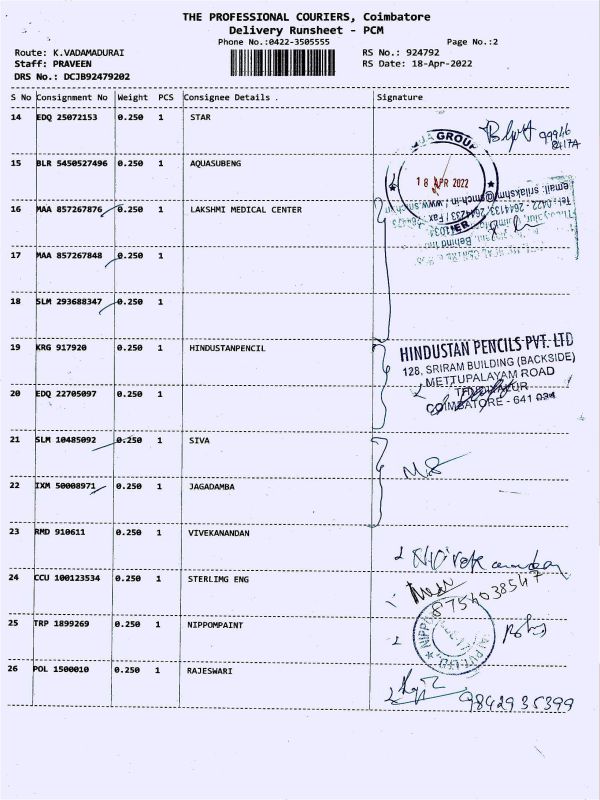 THE PROFESSIONAL COURIERS, Coimbatore
Delivery Runsheet - PCM
Phone No.:0422-3505555
Page No.:2
Route: K.VADAMADURAI
RS No.: 924792
Staff: PRAVEEN
RS Date: 18-Apr-2022
DRS No.: DCJB92479202
S No Consignment No Weight PCS Consignee Details . Signature
14 EDQ 25072153 0.250 1 STAR
99946
8417A
GROUP
18 APR 2022
15 BLR 5450527496 0.250 1 AQUASUBENG
16 MAA 857267876 0.250 1 LAKSHMI MEDICAL CENTER
17 MAA 857267848 0.250 1
18 SLM 293688347 0.250 1
19 KRG 917920 0.250 1 HINDUSTANPENCIL
HINDUSTAN PENCILS PVT. LTD
128, SRIRAM BUILDING (BACKSIDE)
METTUPALAYAM ROAD
COIMBATORE - 641
20 EDQ 22705097 0.250 1
21 SLM 10485092 0.250 1 SIVA
22 IXM 50008971 0.250 1 JAGADAMBA
23 RMD 910611 0.250 1 VIVEKANANDAN
24 CCU 100123534 0.250 1 STERLIMG ENG
8754038547
25 TRP 1899269 0.250 1 NIPPOMPAINT
26 POL 1500010 0.250 1 RAJESWARI
9842935399